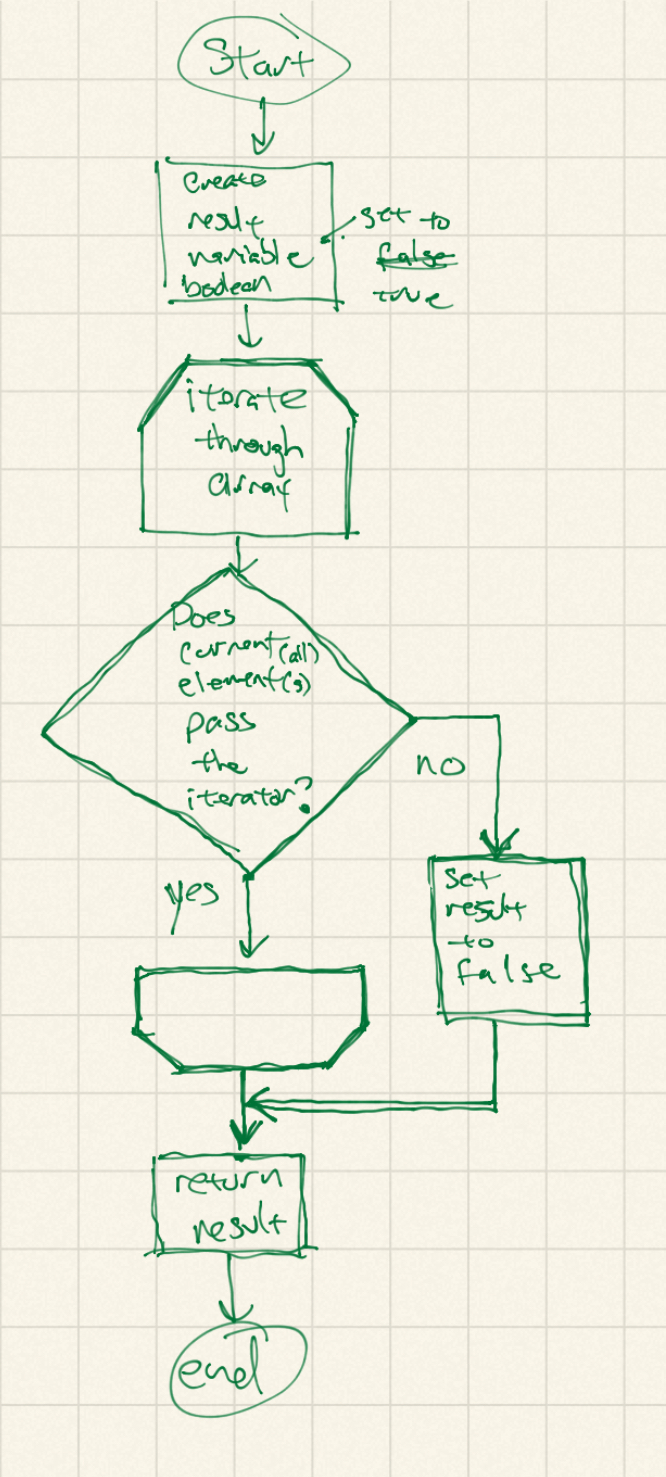 Start
Create
result
variable
boolean
set to
false
true
iterate
through
array
Does
current (all)
element(s)
pass
the
iterator?
no
yes
set
result
to
false
return
result
end